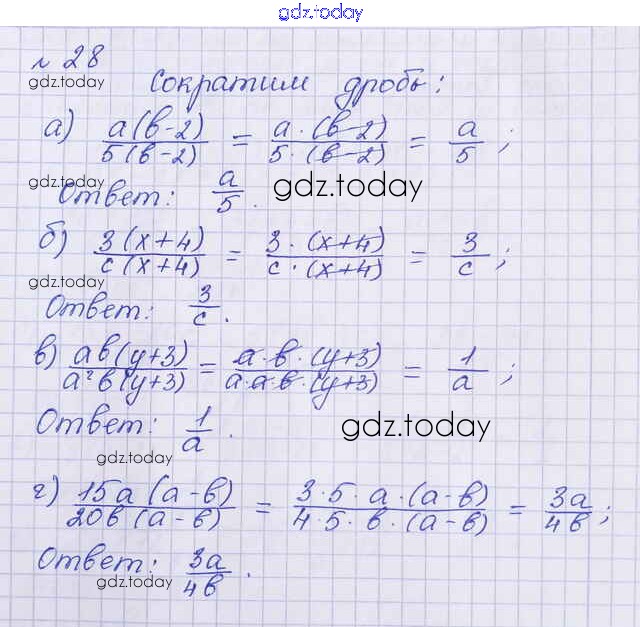 gdz.today
№ 28
gdz.today
Сократим дробь:
а) a(b-2)/5(b-2) = a·(b-2)/5·(b-2) = a/5;
gdz.today
Ответ: a/5. gdz.today
б) 3(x+4)/c(x+4) = 3·(x+4)/c·(x+4) = 3/c;
gdz.today
Ответ: 3/c.
в) ab(y+3)/a²b(y+3) = a·b·(y+3)/a·a·b·(y+3) = 1/a;
Ответ: 1/a. gdz.today
gdz.today
г) 15a(a-b)/20b(a-b) = 3·5·a·(a-b)/4·5·b·(a-b) = 3a/4b;
Ответ: 3a/4b.
gdz.today